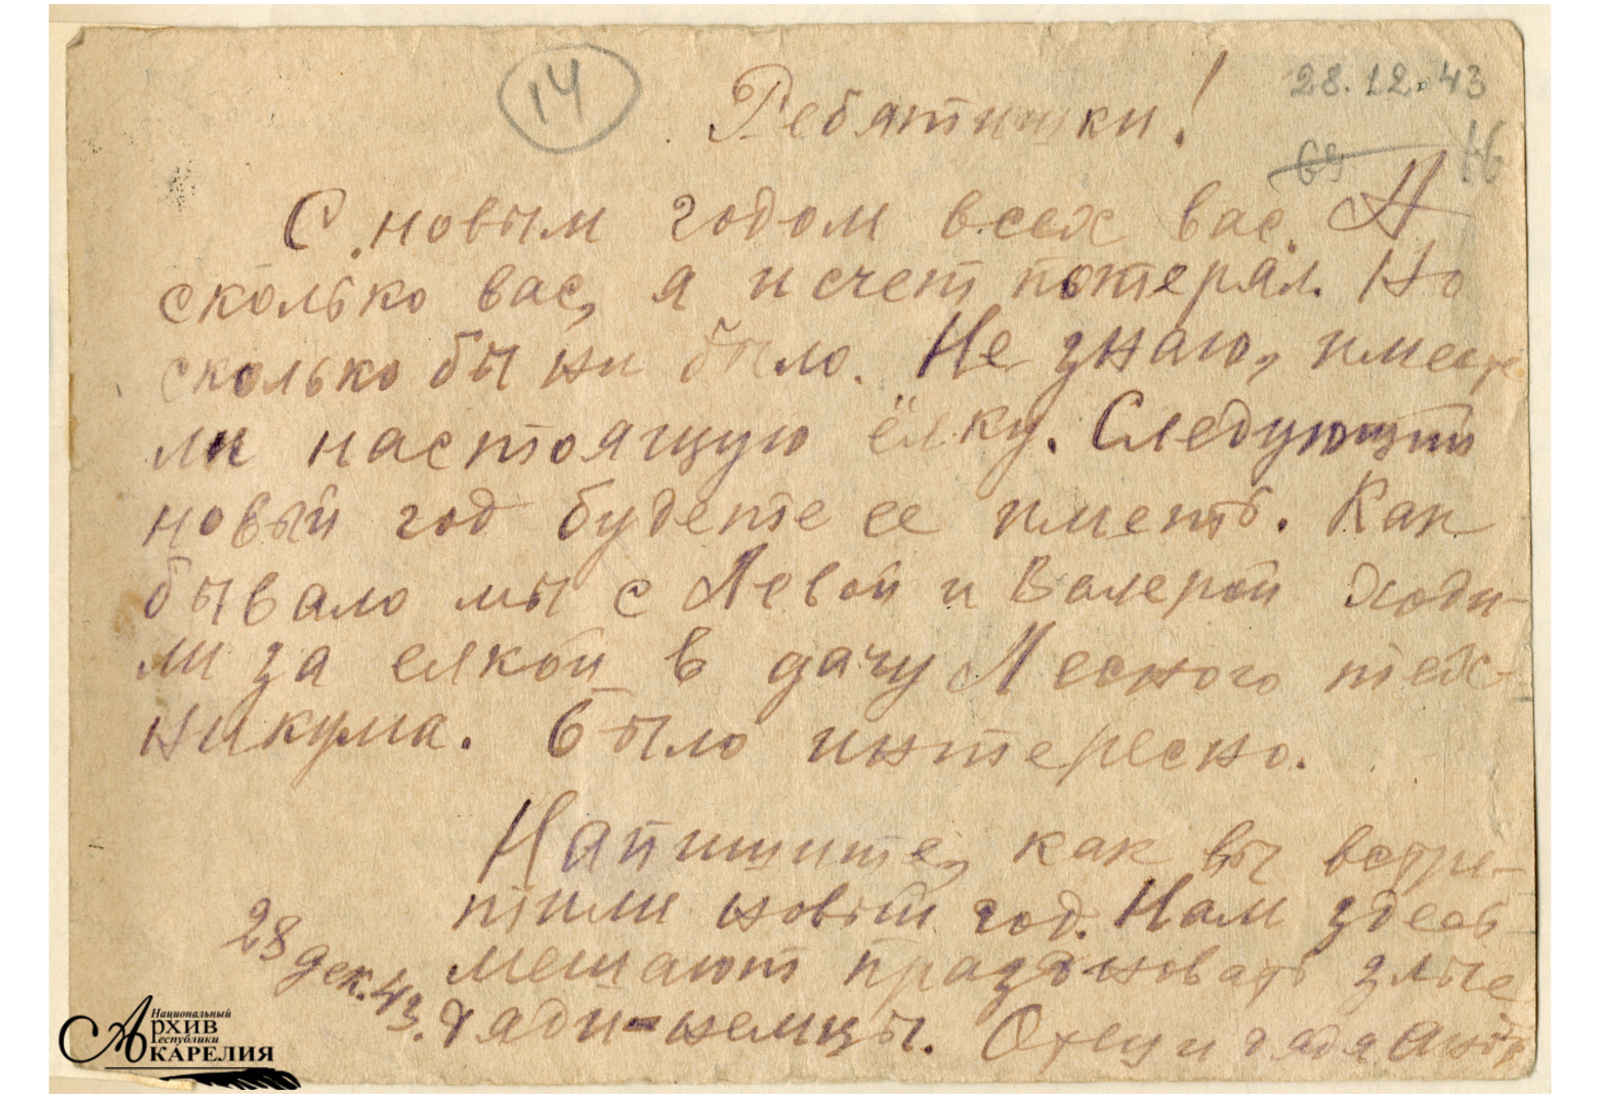 14
28.12.43
Ребятишки!
69
46
С новым годом всех вас. А
сколько вас, я и счет потерял. Но
сколько бы ни было. Не знаю, имеете
ли настоящую ёлку. Следующий
новый год будете ее иметь. Как
бывало мы с Левой и Валерой ходи-
ли за елкой в дачу Лесного тех-
никума. Было интересно.
Напишите, как вы встре-
тили новый год. Нам здесь
мешают праздновать злые
дяди-немцы. Отец и дядя
28 дек. 43.
Национальный
Архив
Республики
Карелия